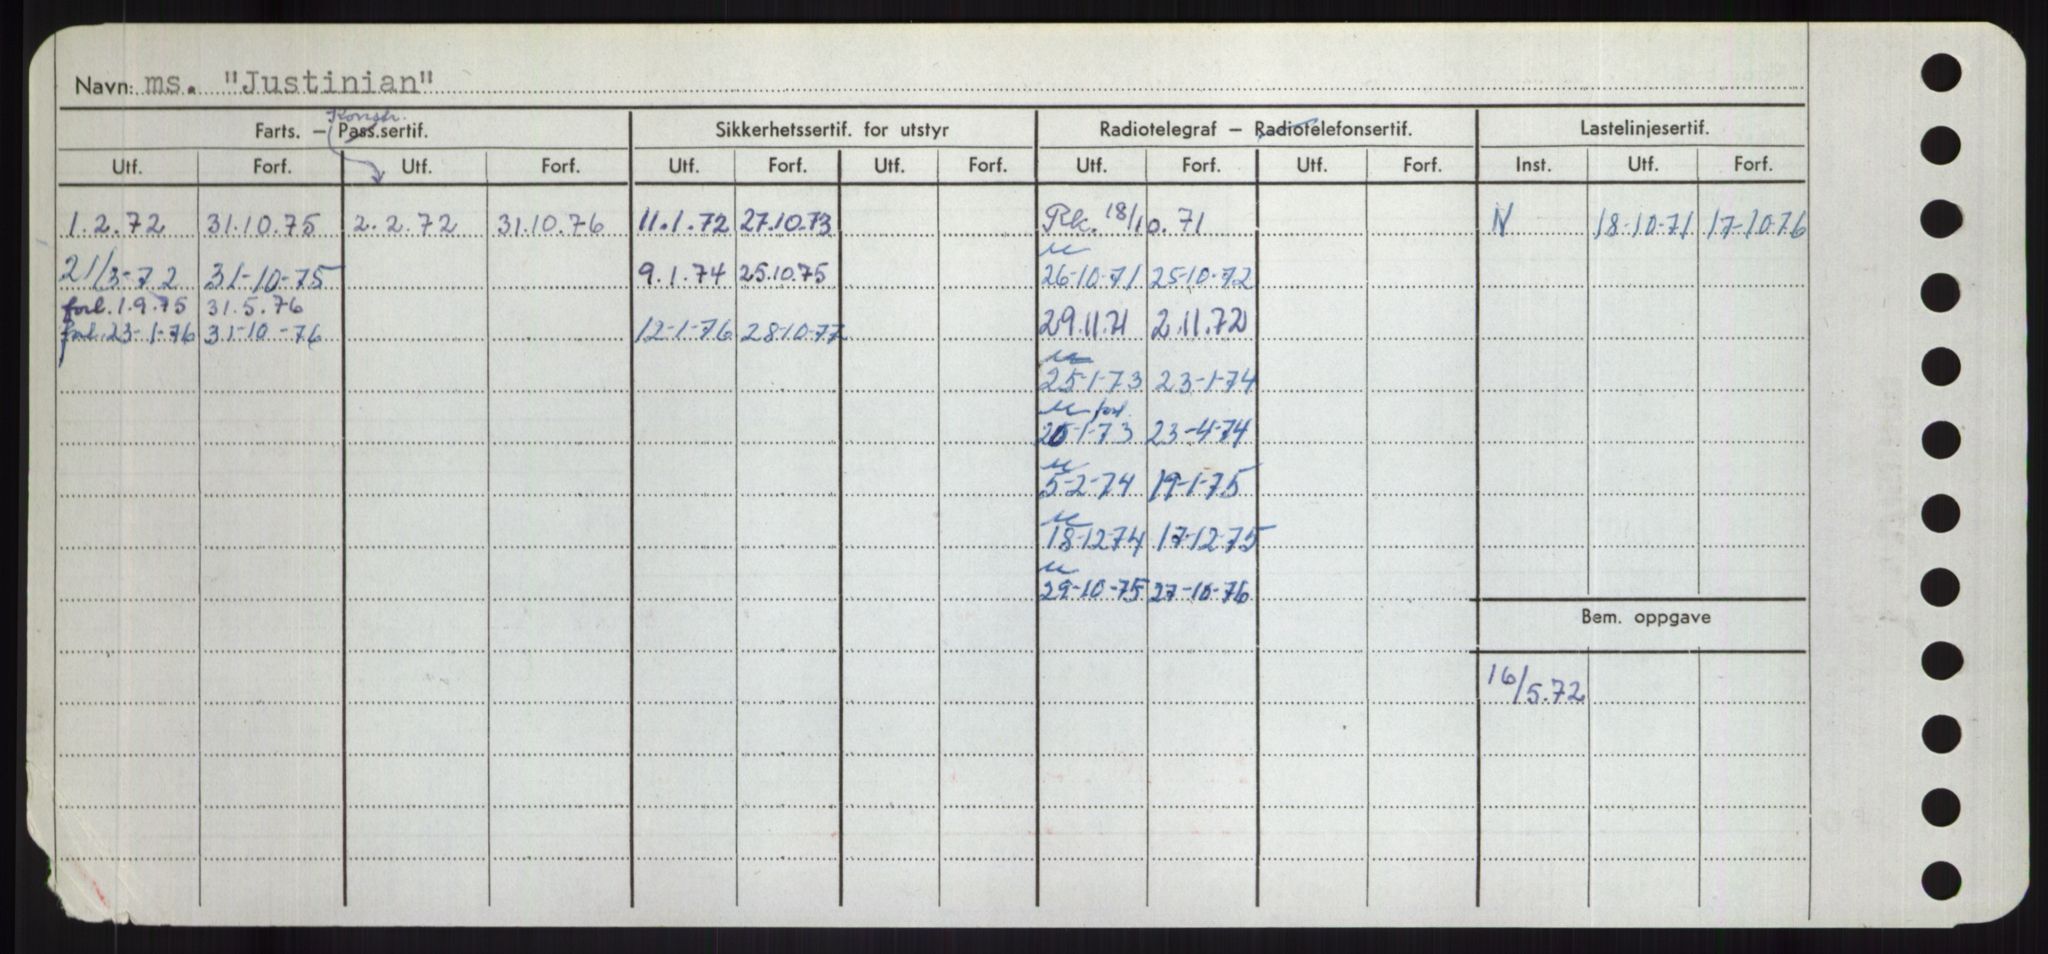 Navn: ms. "Justinian"
Konstr.
Farts. – Pass.sertif. Sikkerhetssertif. for utstyr Radiotelegraf – Radiotelefonsertif. Lastelinjesertif.
Utf. Forf. Utf. Forf. Utf. Forf. Utf. Forf. Utf. Forf. Utf. Forf. Inst. Utf. Forf.
1.2.72 31.10.75 2.2.72 31.10.76 11.1.72 27.10.73 Rk. 18/10.71 N 18-10-71 17-10-76
21/3-72 31-10-75 9.1.74 25.10.75 26-10-71 25-10-72
forl. 1.9.75 31.5.76
forl. 23-1-76 31-10-76 12-1-76 28-10-77 29.11.71 2.11.72
25-1-73 23-1-74
forl.
25-1-73 23-4-74
5-2-74 19-1-75
18-12-74 17-12-75
29-10-75 27-10-76
Bem. oppgave
16/5.72